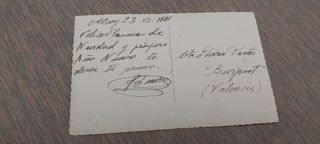 Alcoy 23 XII 1931
Felices Pascuas de
Navidad y próspero
Año Nuevo te
desea tu primo.
Srta Elvira
Burjasot
(Valencia)